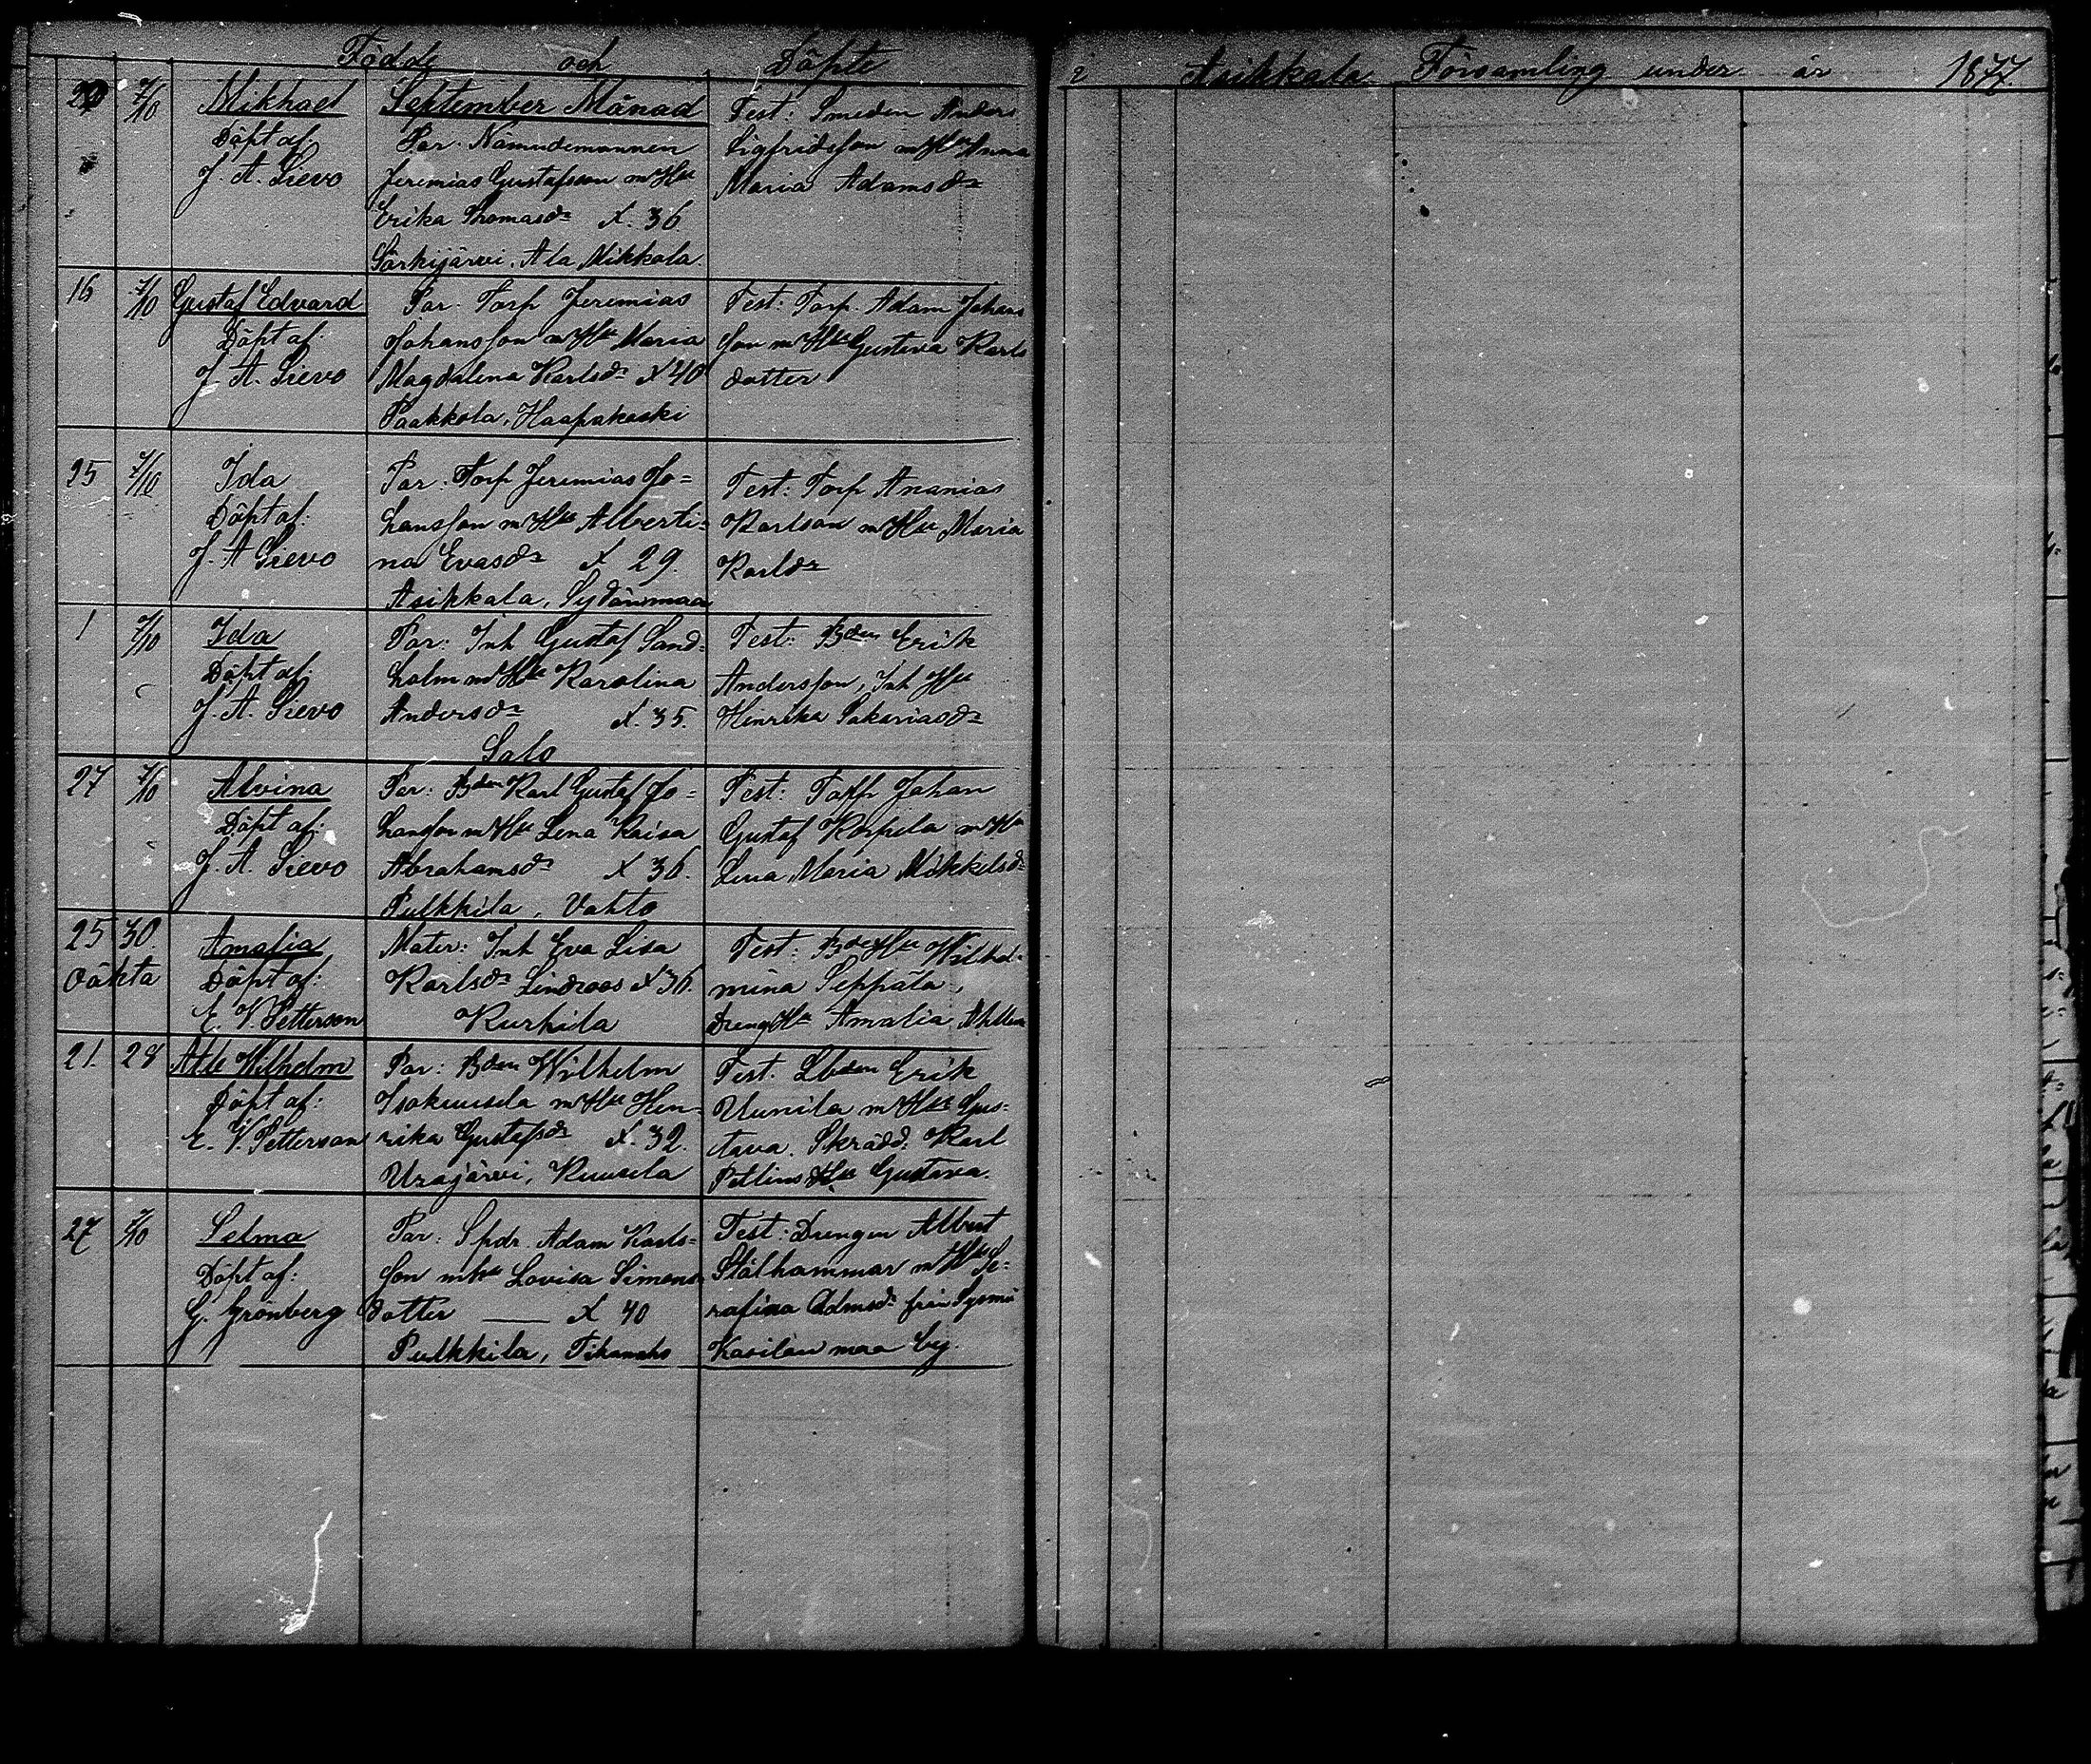 Födde och Döpte i Asikkala Församling under år 1877.
September Månad
29 7/10 Mikhael
Döpt af:
J. A. Sievo
Par. Nämndemannen
Jeremias Gustafsson m Hu
Erika Thomasdr ✗. 36.
Särkijärvi, Ala Mikkola.
Test: Smeden Anders
Sigfridsson m Hu Anna
Maria Adamsdr
16 7/10 Gustaf Edvard
Döpt af:
J. A. Sievo
Par. Torp Jeremias
Johansson m Hu Maria
Magdalena Karlsdr ✗ 40
Paakkola, Haapakoski
Test: Torp. Adam Johans
son m Hu Gustava Karls
dotter
25 7/10 Ida
Döpt af:
J. A Sievo
Par: Torp Jeremias Jo=
hansson m Hu Alberti=
na Evasdr ✗ 29.
Asikkala, Sydänmaa
Test: Torp Ananias
Karlson m Hu Maria
Karldr
1 7/10 Ida
Döpt af:
J. A. Sievo
Par: Inh Gustaf Sand=
holm m Hu Karolina
Andersdr ✗. 35.
Salo
Test: Bden Erik
Andersson, Inh Hu
Hinrika Sakariasdr
27 7/10 Alvina
Döpt af:
J. A. Sievo
Par: Bden Karl Gustaf Jo=
hansson m Hu Lena Kaisa
Abrahamsdr ✗ 36.
Pulkkila, Vahto
Test: Torp Johan
Gustaf Korpela m Hu
Lena Maria Mikkelsdr
25 30. Amalia
oäkta Döpt af:
E. V. Petterson
Mater: Inh Eva Lisa
Karlsdr Lindroos ✗ 36.
Kurhila
Test: Bde Hu Wilhel=
mina Seppälä,
Dreng Hu Amalia
21. 28 Atle Wilhelm
Döpt af:
E. V. Petterson
Par: Bden Wilhelm
Isokuusela m Hu Hen=
rika Gustafsdr ✗. 32.
Urajärvi, Kuusela
Test. Lbden Erik
Uunila m Hu Gus=
tava. Skrädd: Karl
Hu Gustava.
27 7/10 Selma
Döpt af:
G. Grönberg
Par: Spdr. Adam Karls=
son m hu Lovisa Simons
dotter — ✗ 40
Pulkkila,
Test: Drengen Albert
Stålhammar m Hu Se=
rafina Admsdr från Sysmä
by.